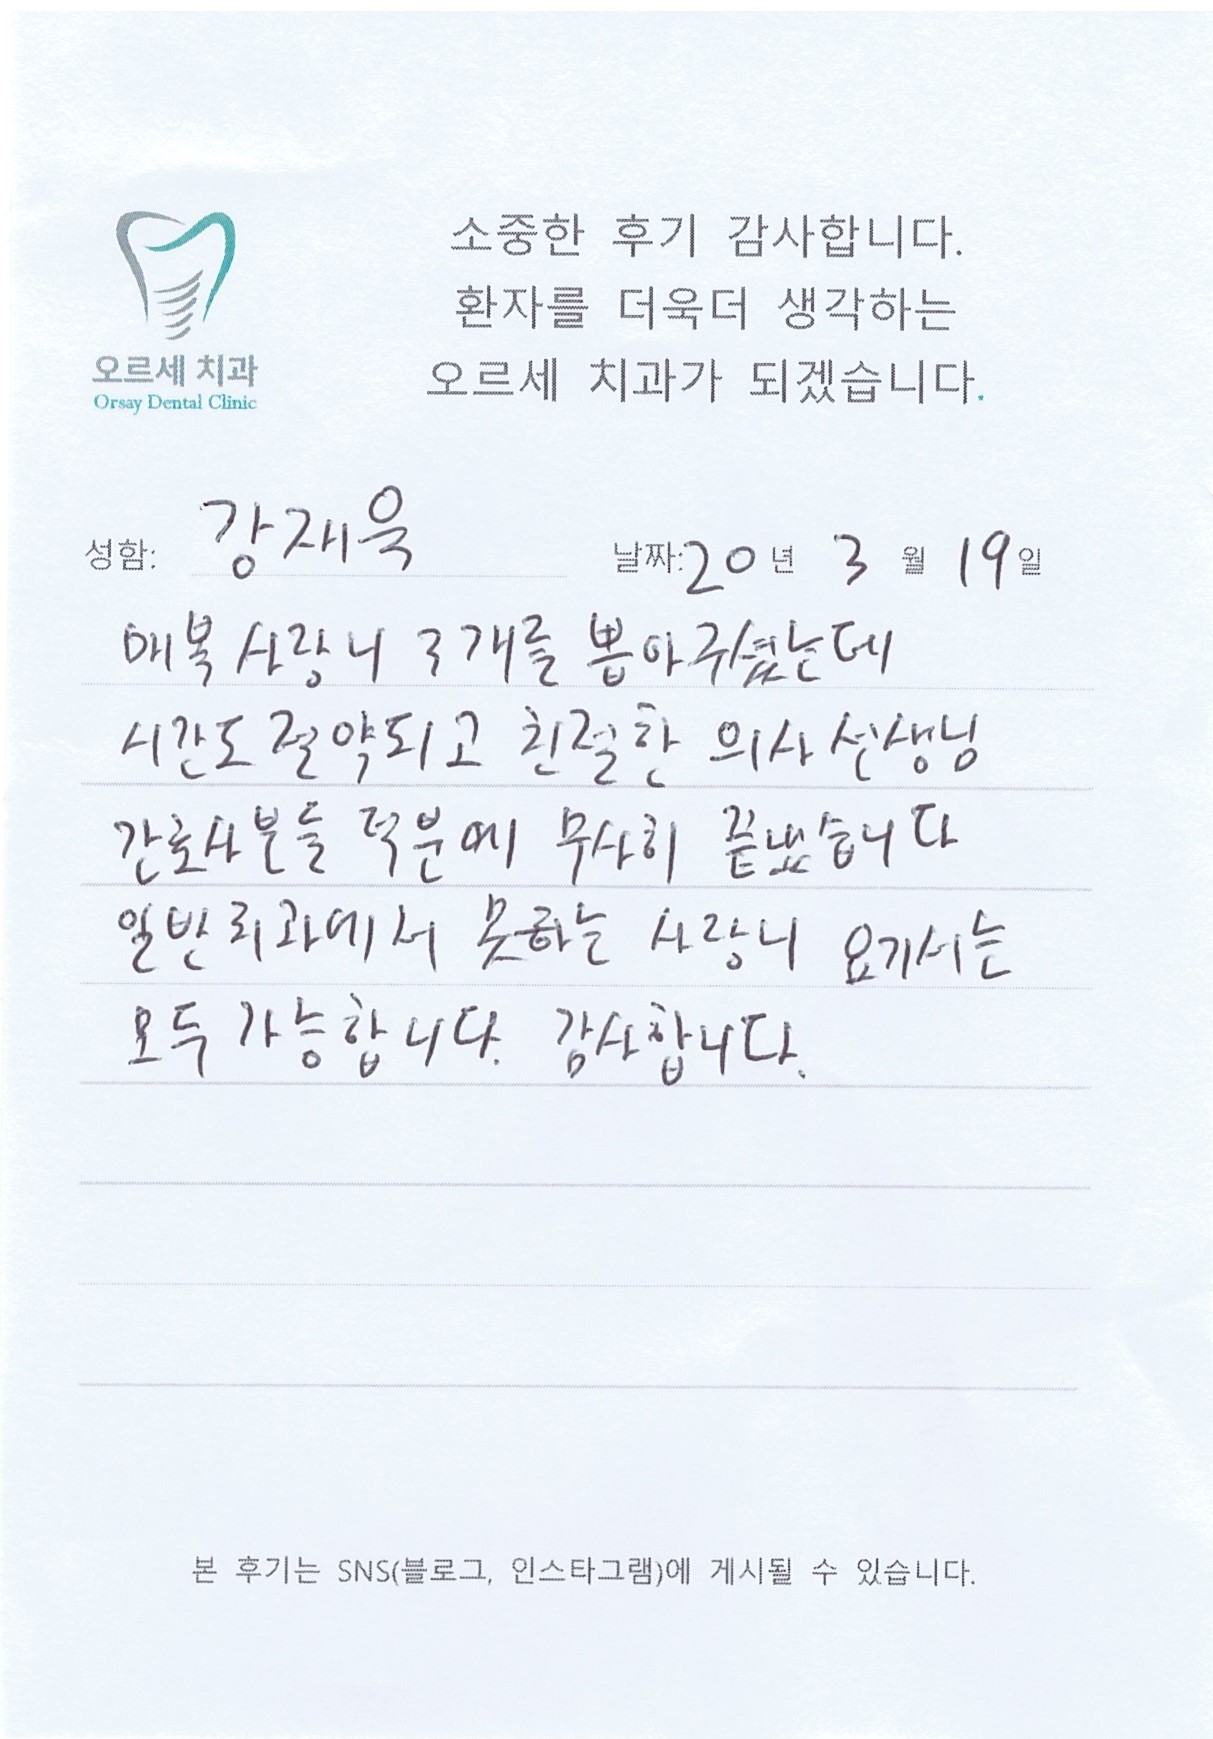 소중한 후기 감사합니다.
환자를 더욱더 생각하는
오르세 치과가 되겠습니다.
오르세 치과
Orsay Dental Clinic
성함: 강재욱 날짜: 20년 3월 19일
매복 사랑니 3개를 뽑아주셨는데
시간도 절약되고 친절한 의사선생님
간호사분들 덕분에 무사히 끝냈습니다
일반 치과에서 못하는 사랑니 요기서는
모두 가능합니다. 감사합니다.
본 후기는 SNS(블로그, 인스타그램)에 게시될 수 있습니다.